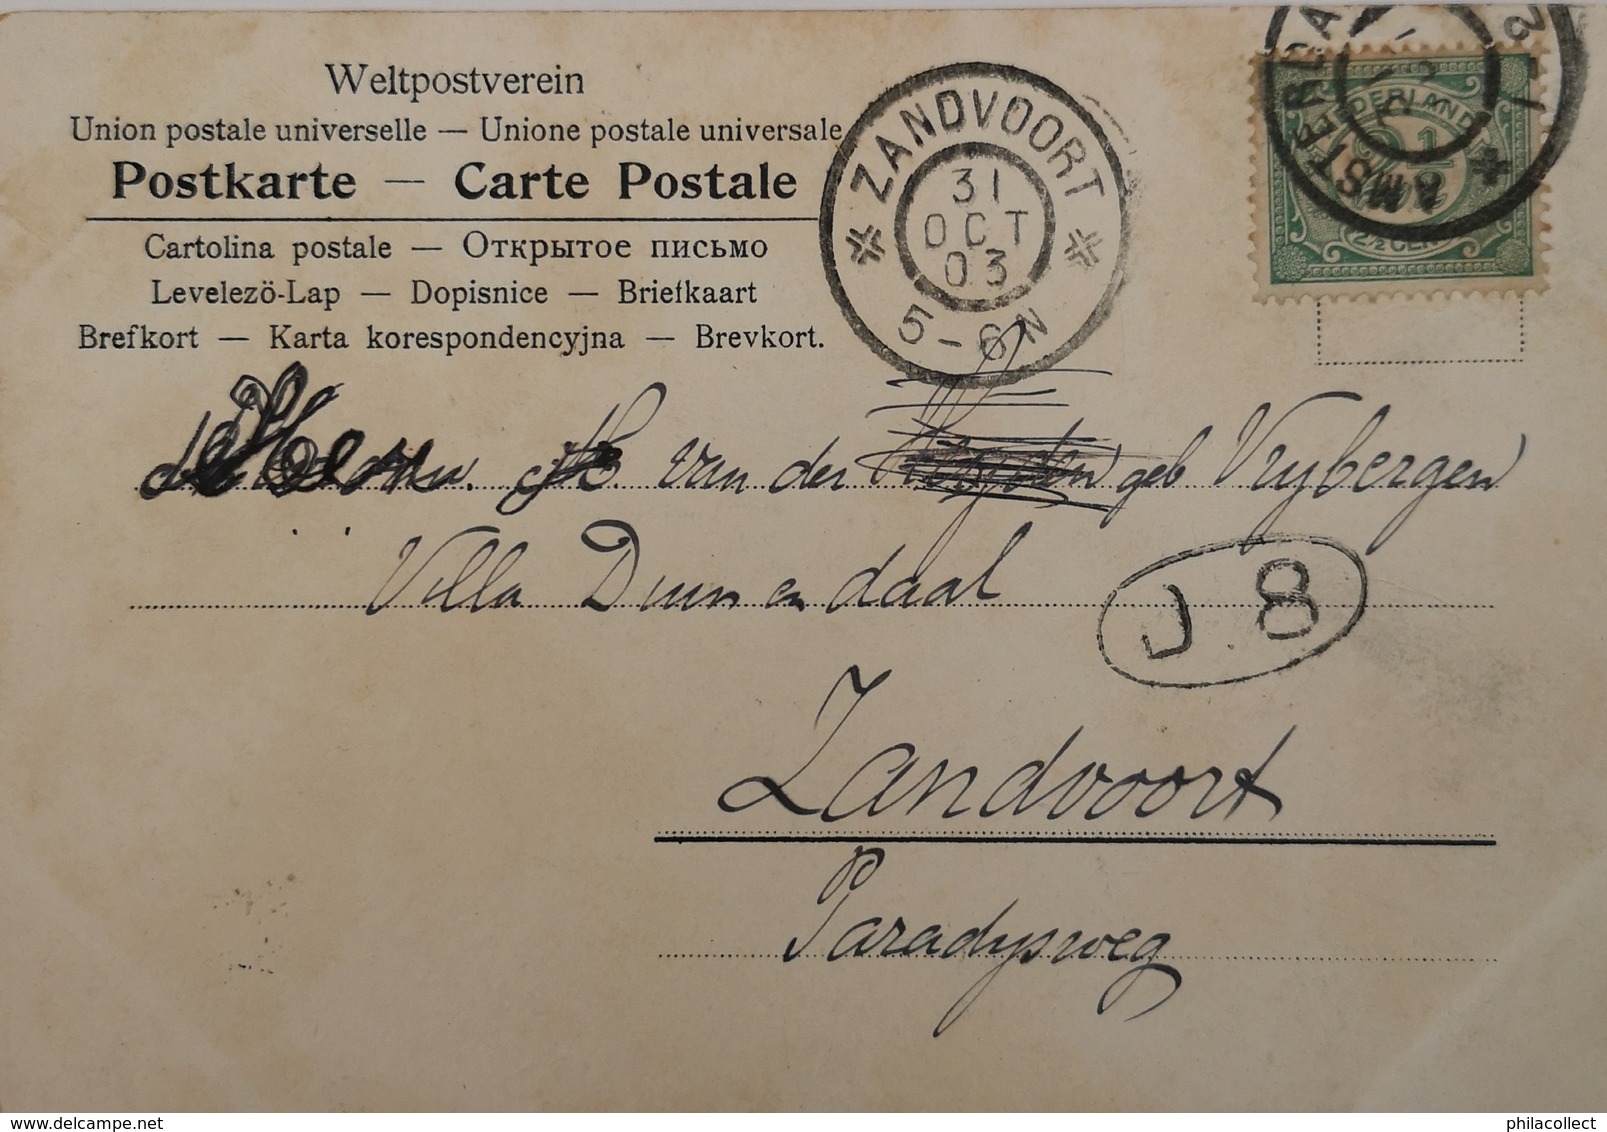 Weltpostverein
Union postale universelle — Unione postale universale
Postkarte — Carte Postale
Cartolina postale — Открытое письмо
Levelezö-Lap — Dopisnice — Briefkaart
Brefkort — Karta korespondencyjna — Brevkort.
ZANDVOORT
31
OCT
03
5-6N
AMSTERDA
NEDERLAND
2½ CENT
van der geb Vrybergen
Villa Duin en daal
J 8
Zandvoort
Paradysweg
philacollect